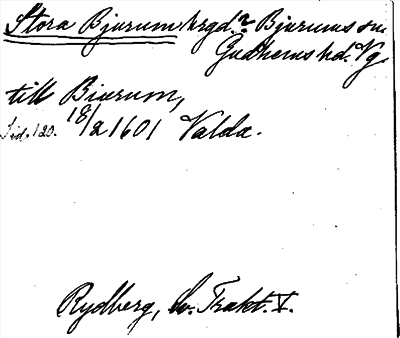 Stora Bjurum hrgd.? Bjurums sn.
Gudhems hd. Vg
till Biurum,
Sid. 120. 18/2 1601 Valda.
Rydberg, Sv. Trakt. V.